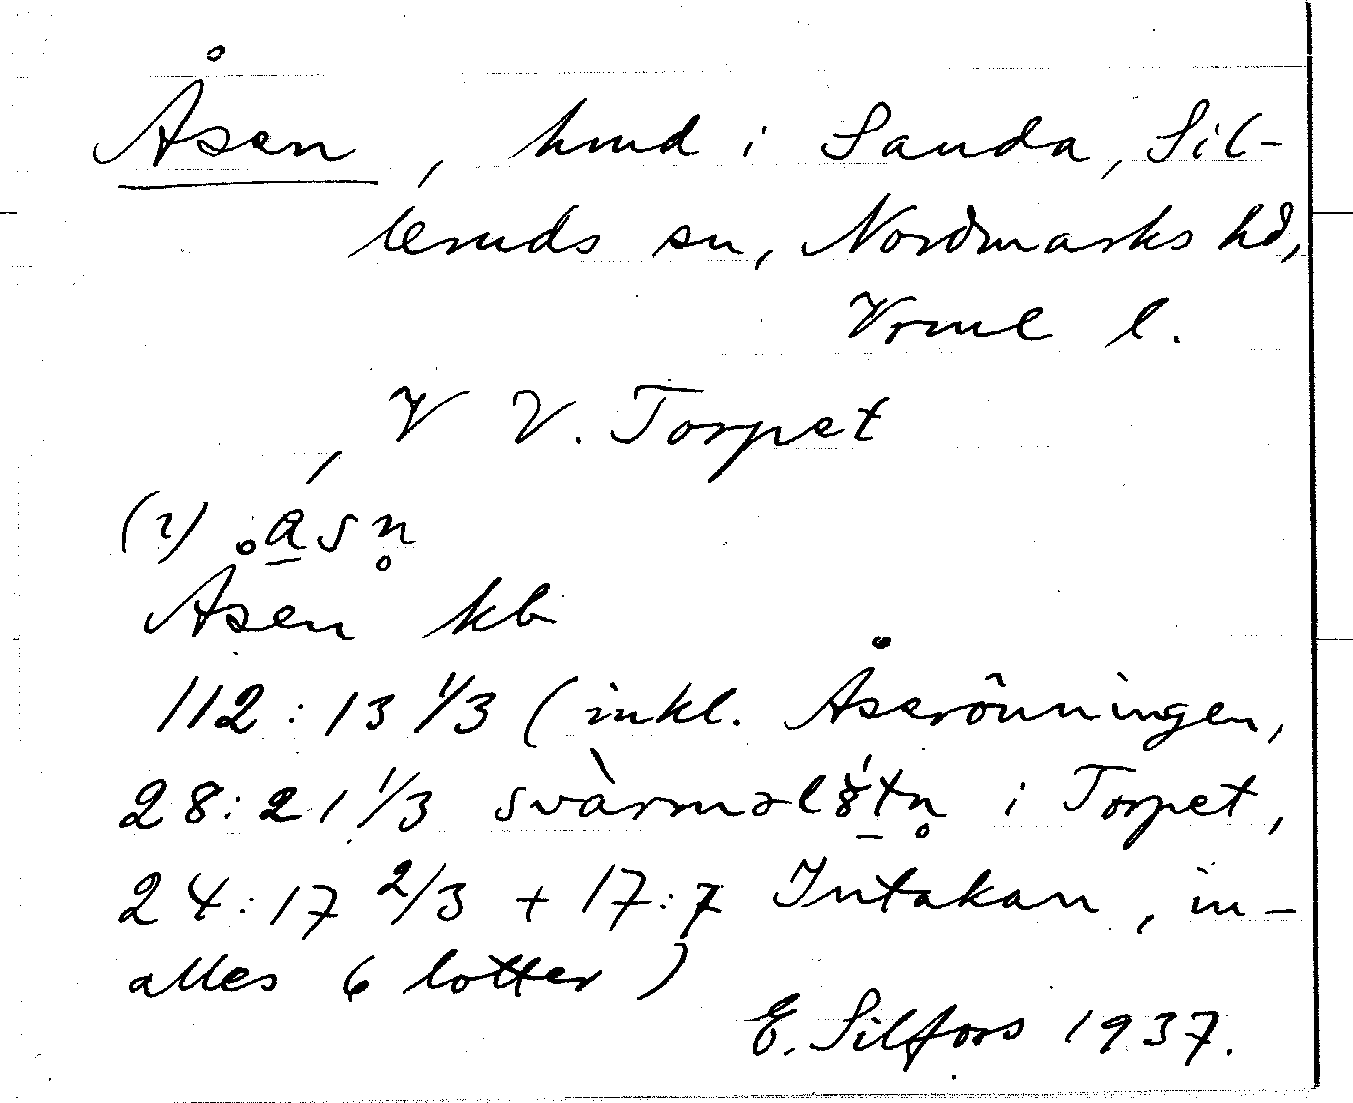 Åsen, hmd i Sanda, Sil-
leruds sn, Nordmarks hd,
Vrml l.
V V. Torpet
(2) åsn̥
Åsen kb
112:13 1/3 (inkl. Åserönningen,
28:21 1/3 i Torpet,
24:17 2/3 + 17:7 Intakan, in-
alles 6 lotter)
E. Silfors 1937.